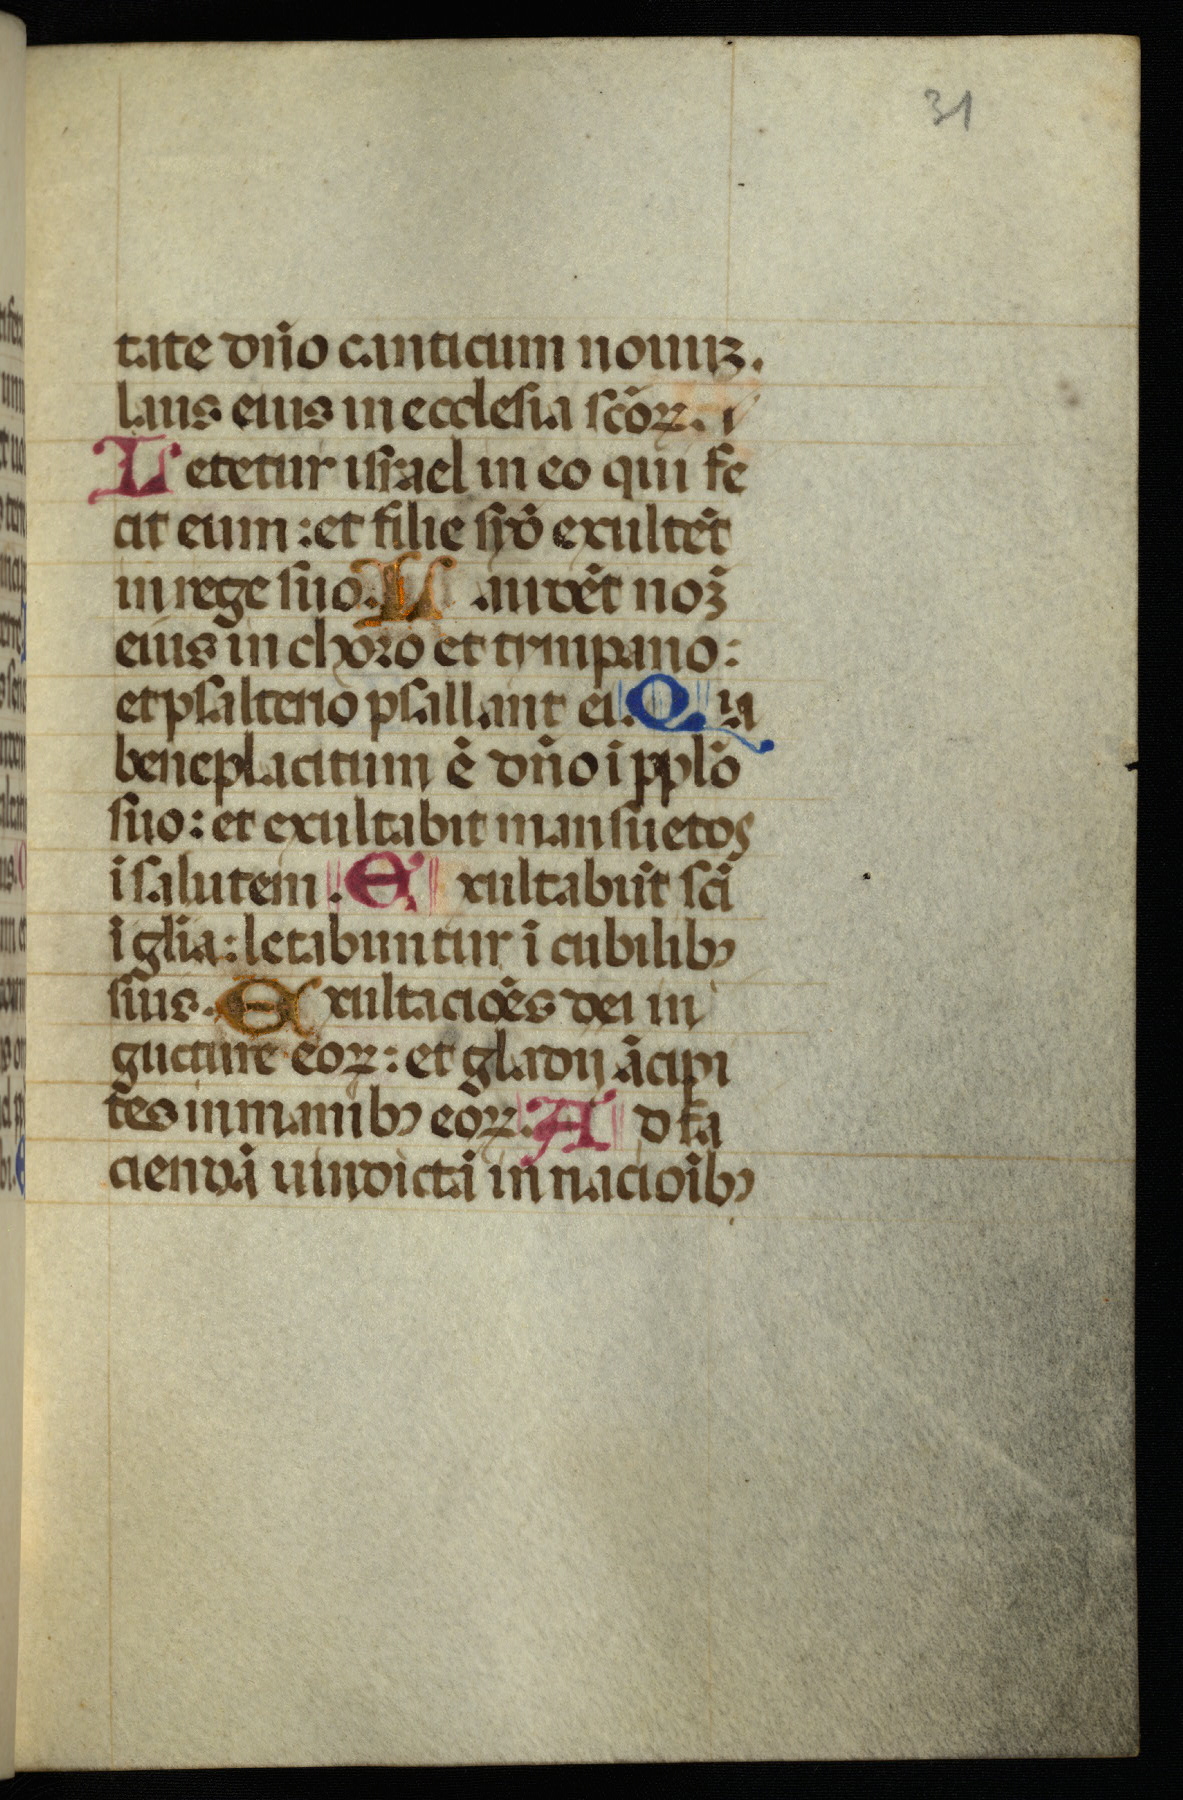 31
tate dño canticum nouuꝫ.
laus eius in ecclesia scõꝝ.
Letetur israel in eo qui fe
cit eum: et filie syõ exultẽt
in rege suo. Laudẽt noꝫ
eius in choro et tympano:
et psalterio psallant ei. Qͥa
beneplacitum ẽ dño ĩ pplõ
suo: et exultabit mansuetos
ĩ salutem. Exultabũt scĩ
ĩ gl̃ia: letabuntur ĩ cubilibꝰ
suis. Exultaciões dei in
gucture eoꝝ: et gladij ãcipi
tes in manibꝰ eoꝝ. Ad fa
ciendã uindictã in nacioĩbꝰ